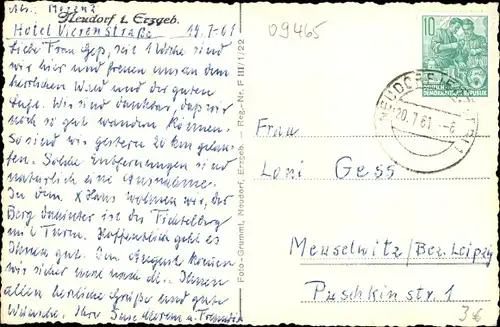 Abs. Merenz
Neudorf i. Erzgeb.
Hotel Vierenstraße 19.7.61
Liebe Frau Geß, seit 1 Woche sind
wir hier und freuen uns an dem
herrlichen Wald und der guten
Luft. Wir sind dankbar, daß wir
noch so gut wandern können.
So sind wir gestern 20 km gelau-
fen. Solche Entfernungen sind
natürlich eine Ausnahme.
In dem X Haus wohnen wir, der
Berg dahinter ist der Fichtelberg
mit Turm. Hoffentlich geht es
Ihnen gut. Im August kommen
wir sicher mal nach dt. Ihnen
allen herzliche Grüße und gute
Wünsche. Ihre
Foto-Grummt, Neudorf, Erzgeb. Reg.-Nr. F III/1/22
09465
10
DEUTSCHE
DEMOKRATISCHE REPUBLIK
NEUDORF
20.7.61
Frau
Loni Gess
Meuselwitz/Bez. Leipzig
Puschkinstr. 1
3€